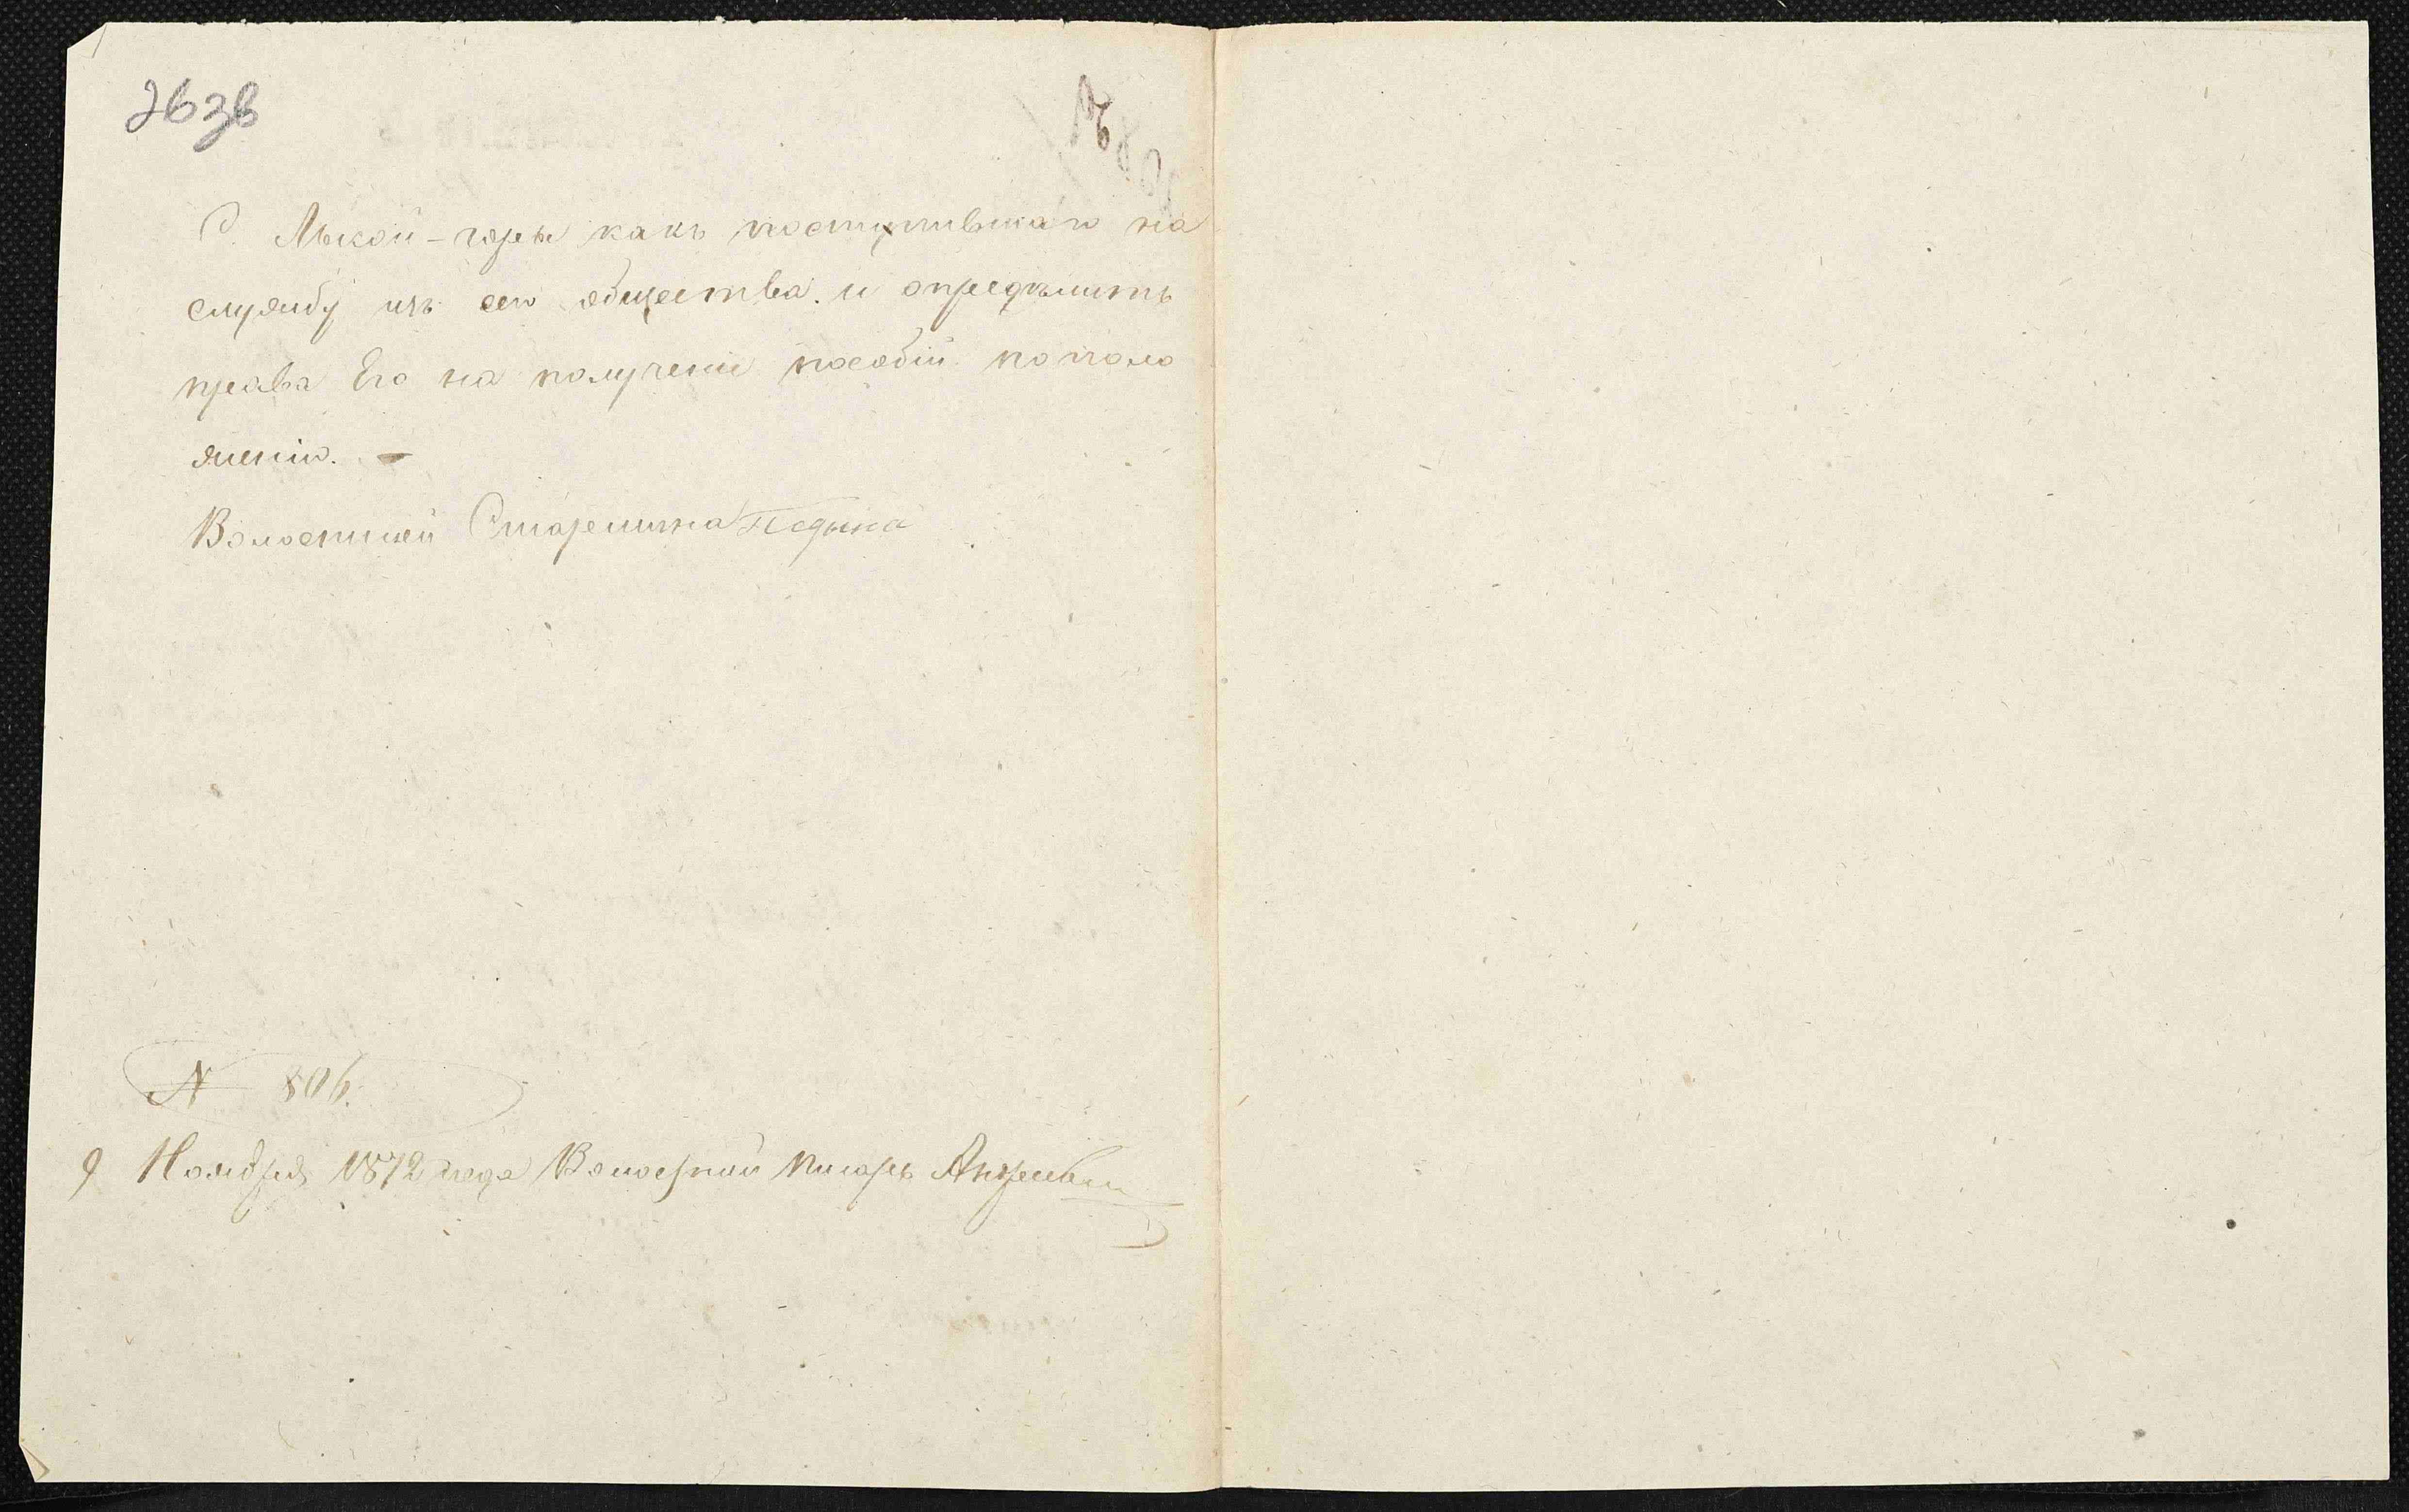 263в
С. Лысой-горы какъ поступившаго на
службу изъ сего общества. и определить
права Его на получение пособій по поло
жению. -
Волостной Старшина Педына
№ 806.
9 Ноября 1872 года Волосной писарь